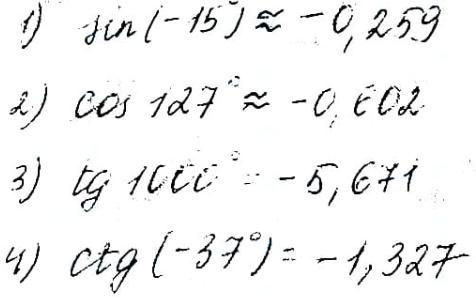 1) sin(-15°) ≈ -0,259
2) cos 127° ≈ -0,602
3) tg 1000° = -5,671
4) ctg (-37°) = -1,327